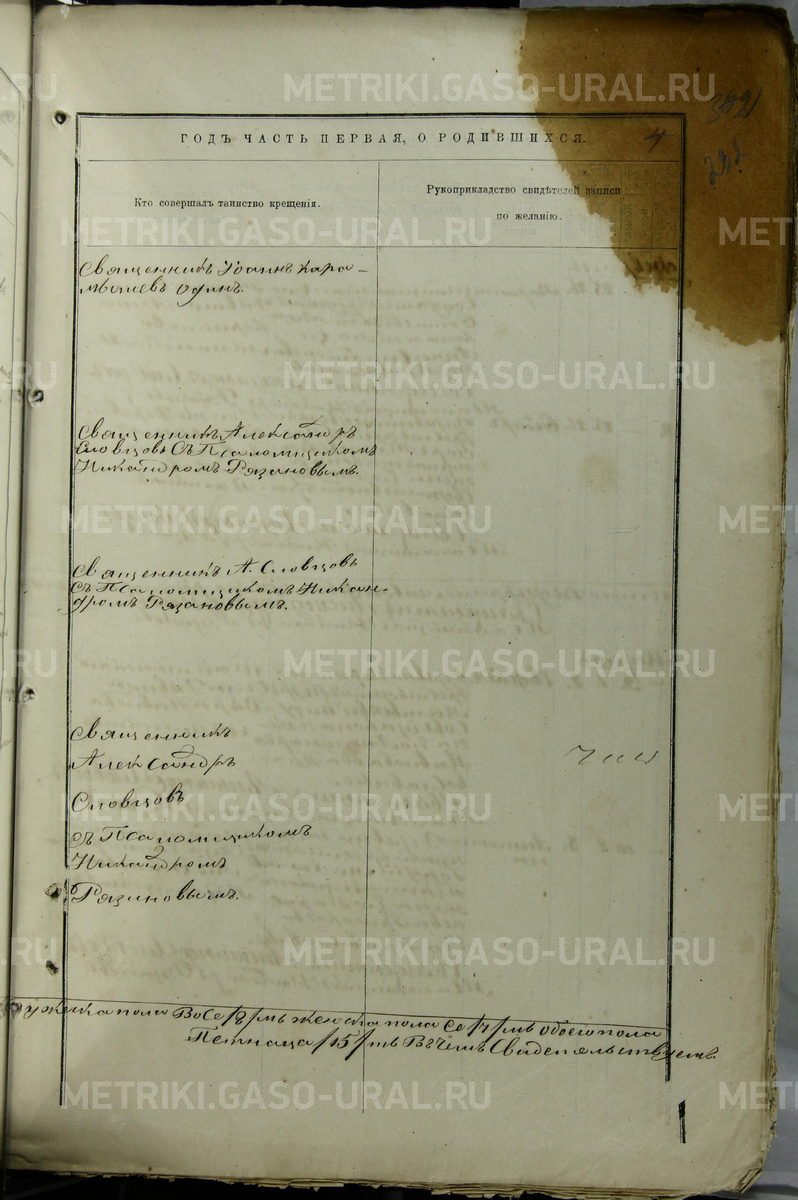 ГОДЪ ЧАСТЬ ПЕРВАЯ, О РОДИВШИХСЯ.
4
Кто совершалъ таинство крещенія.
Рукоприкладство свидѣтелей записи
по желанію.
Священникъ Іоаннъ Кара-
мышевъ одинъ.
Священникъ Александръ
Словцовъ съ Псаломщикомъ
Никандромъ Рязановымъ.
Священникъ А. Словцовъ
съ Псаломщикомъ Никан-
дромъ Рязановымъ.
Священникъ
Александръ
Словцовъ
съ Псаломщикомъ
Никандромъ
Рязановымъ.
мужеска пола Восе/8/мь женска пола Се/7/мь обоего пола
Петнаца/15/ть Въ чемъ Свидетельствуемъ.
METRIKI.GASO-URAL.RU